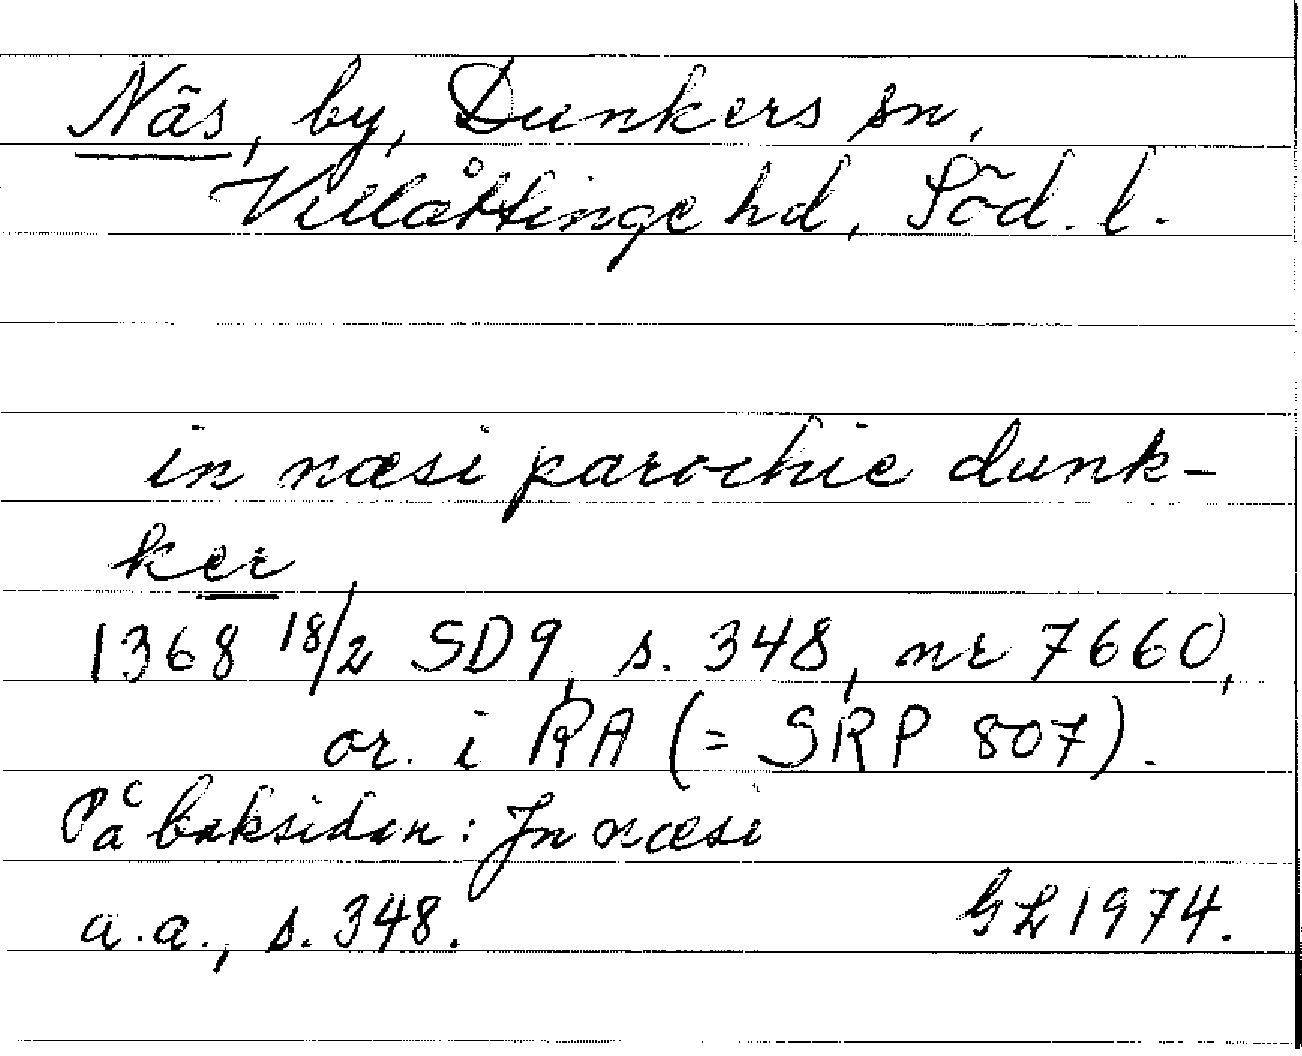 Näs, by, Dunkers sn,
Villåttinge hd, Söd. l.
in næsi parochie dunk-
ker
1368 18/2 SD9, s. 348, nr 7660,
or. i RA (= SRP 807).
På baksidan: In næsi
a.a., s. 348. GL 1974.